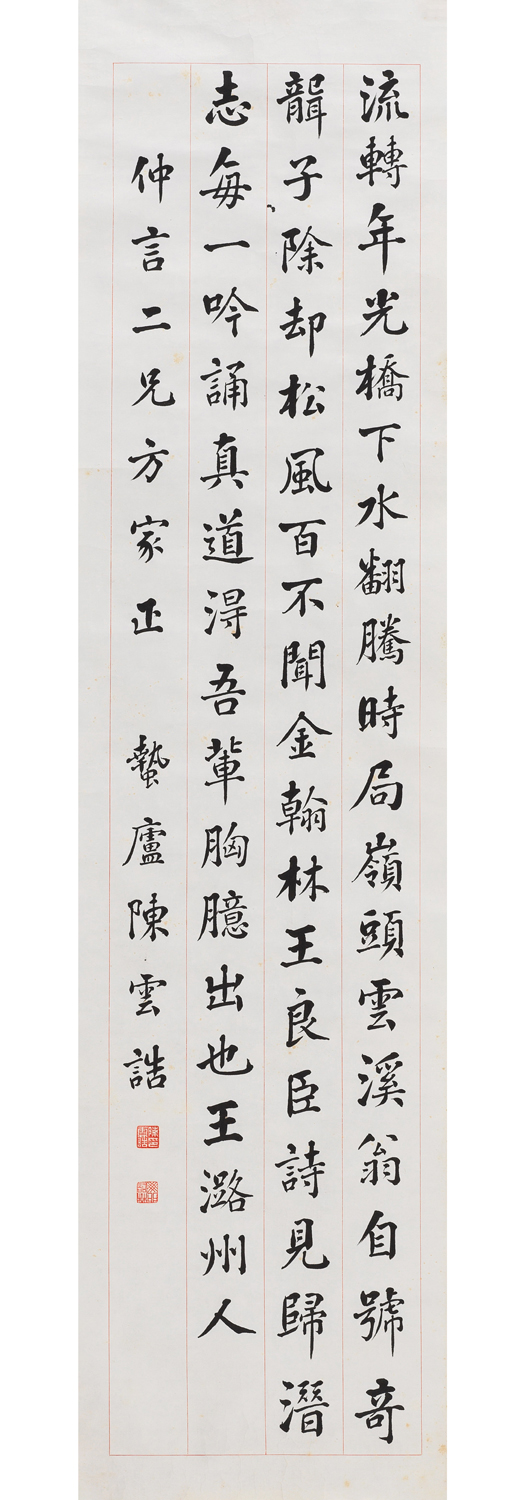 流轉年光橋下水翻騰時局嶺頭雲溪翁自號奇
聾子除却松風百不聞金翰林王良臣詩見歸潛
志每一吟誦真道淂吾輩胸臆出也王潞州人
仲言二兄方家正 蟄廬陳雲誥